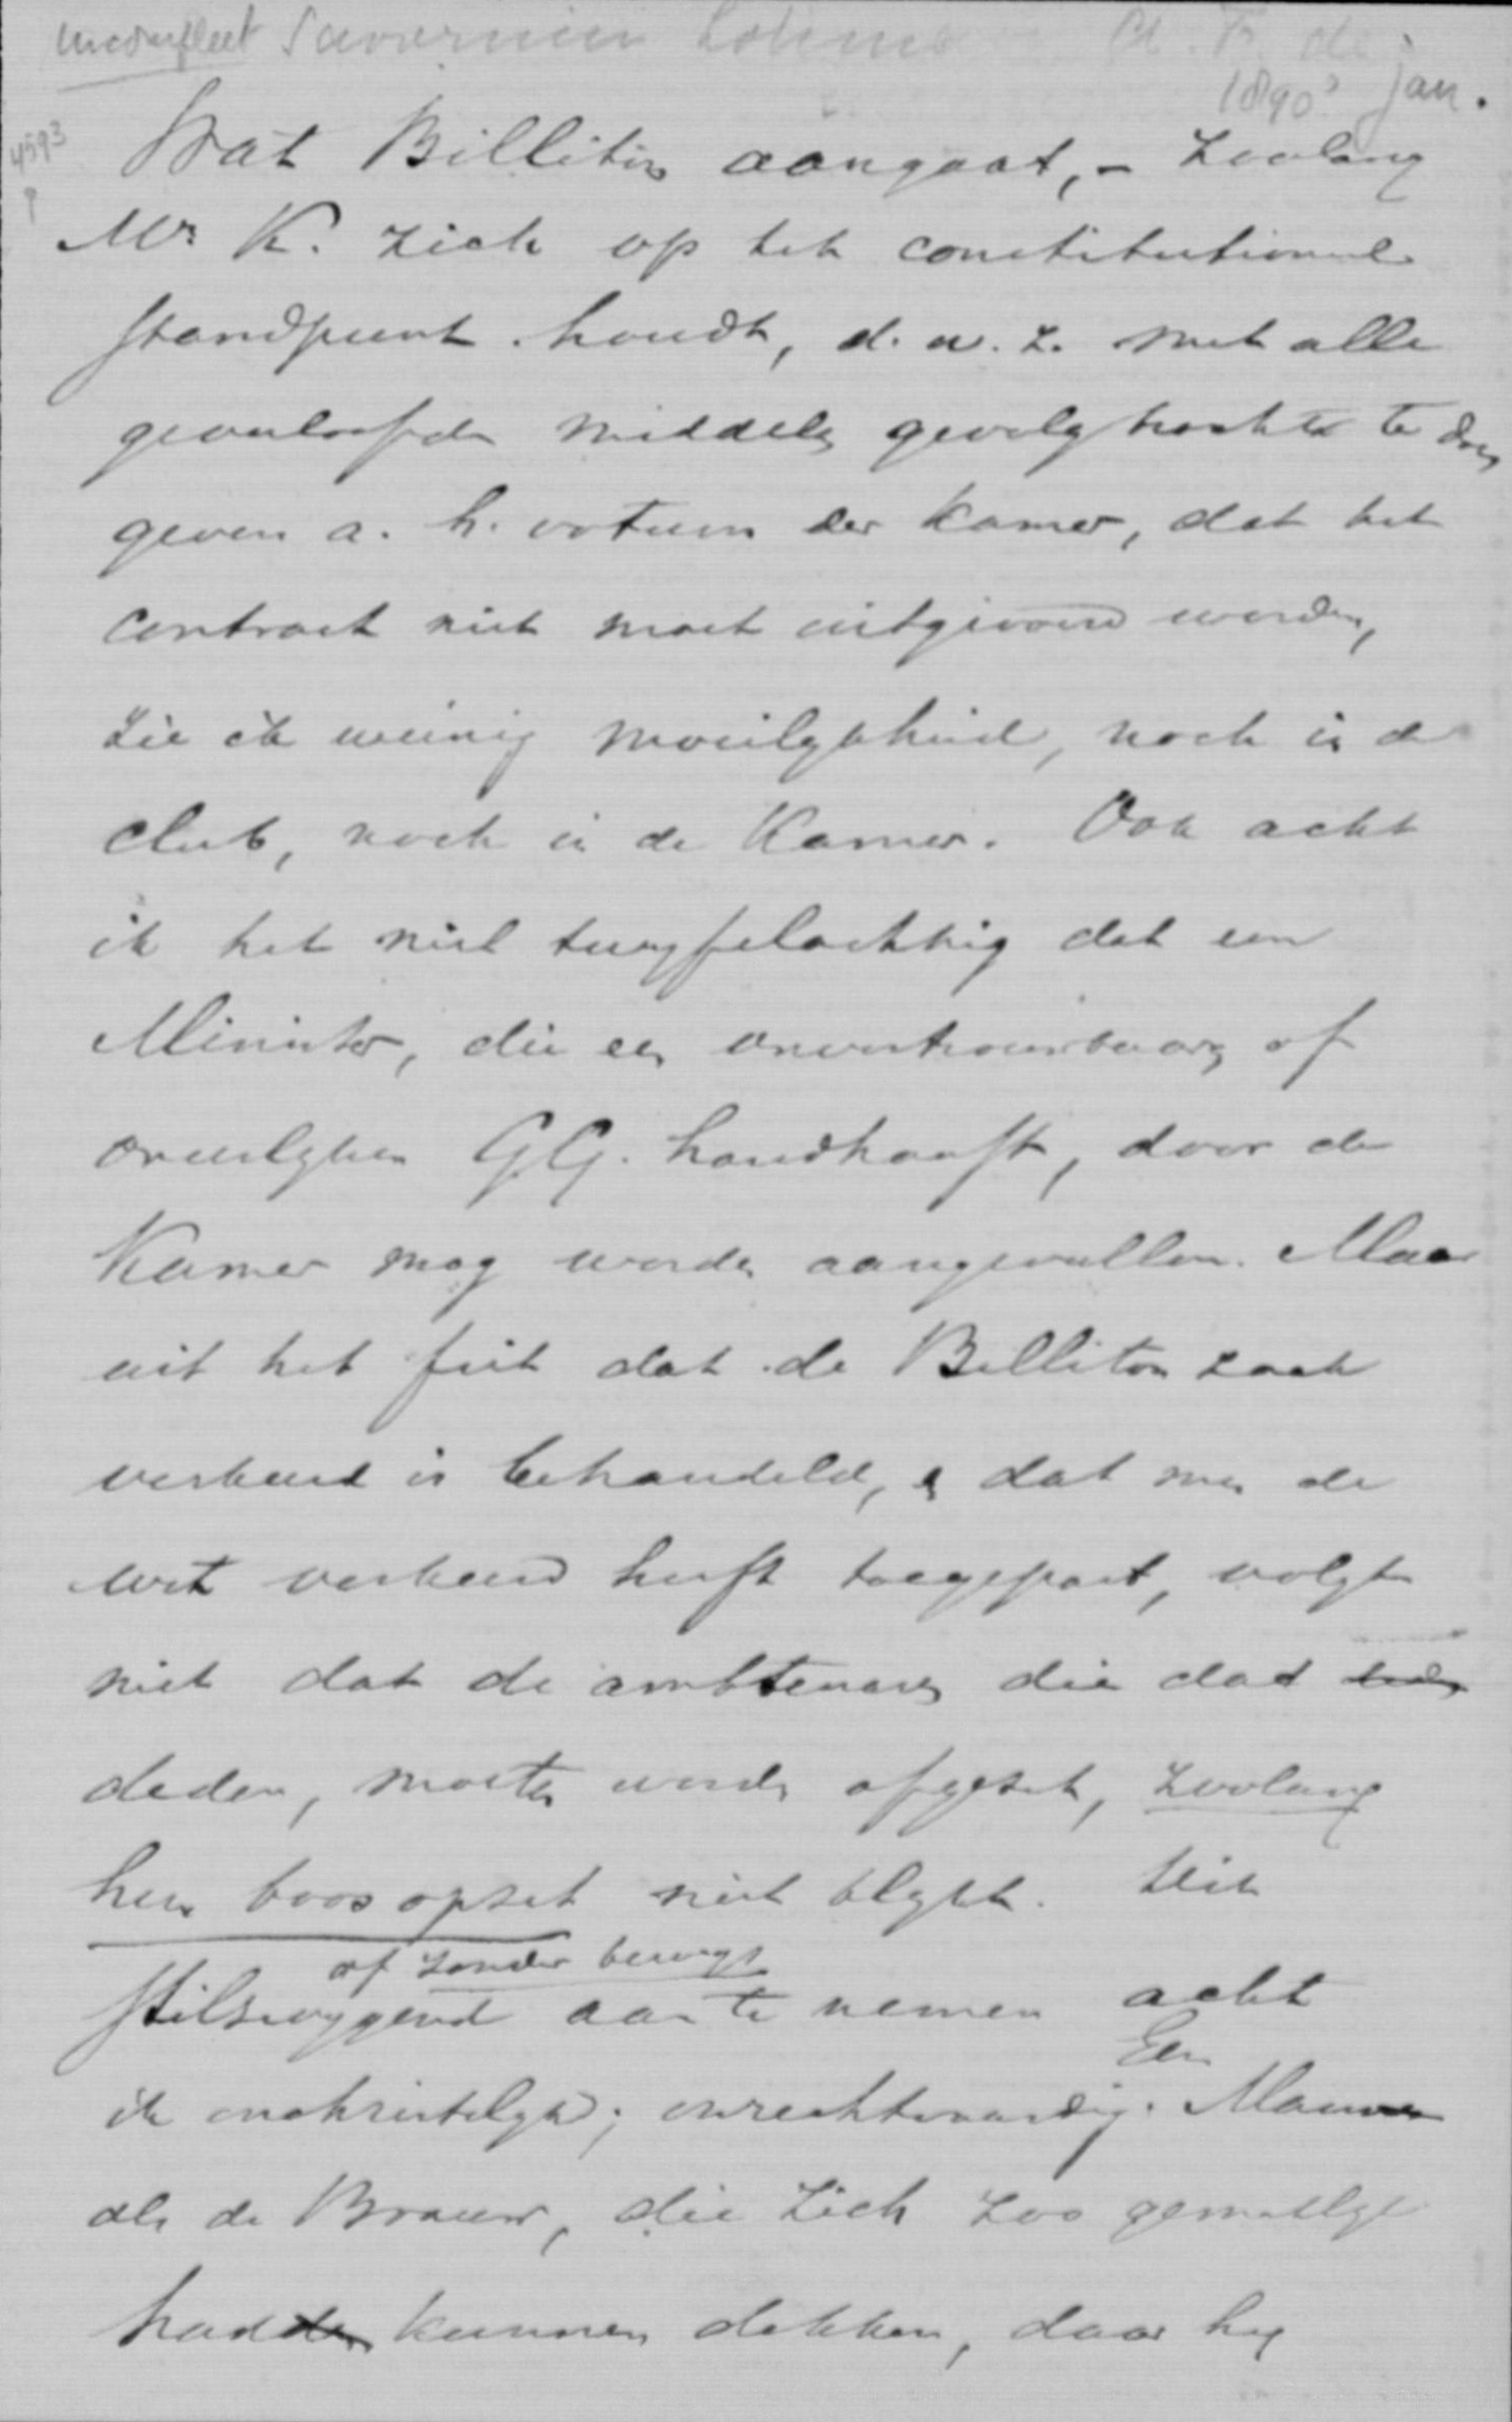 incompleet Savornin Lohme A. F. de
1890? jan.
4593
Wat Billiton aangaat, - Zoolang
Mr K. zich op het constitutioneele
standpunt houdt, d. w. z. met alle
geoorloofde middelen gevolg tracht te doen
geven a. h. votum der Kamer, dat het
contract niet moet uitgevoerd worden,
zie ik weinig moeilykheid, noch in de
club, noch in de Kamer. Ook acht
ik het niet twyfelachtig dat een
Minister, die een onvertrouwbaren of
oneerlyken GG. handhaaft, door de
Kamer mag worden aangevallen. Maar
uit het feit dat de Billiton zaak
verkeerd is behandeld, en dat men de
wet verkeerd heeft toegepast, volgt
niet dat de ambtenaren die dat
deden, moeten worden afgezet, zoolang
hun boos opzet niet blykt. Dit
of zonder bewys
stilzwygend aan te nemen acht
ik onchristelyk; onrechtvaardig. Een Man
als de Brauw, die zich zoo gemakkelyk
had kunnen dekken, daar hy